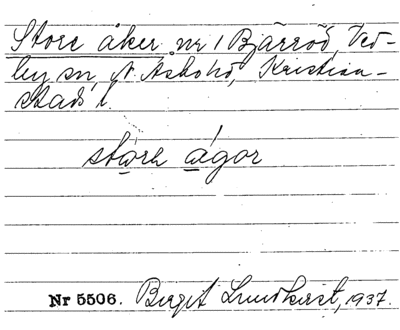 Store åker nr 1 Bjärröd, Ved-
by sn, N Åsbo hd, Kristian-
stads l.
störe ågor
Nr 5506. Birgit Lundkvist, 1937.